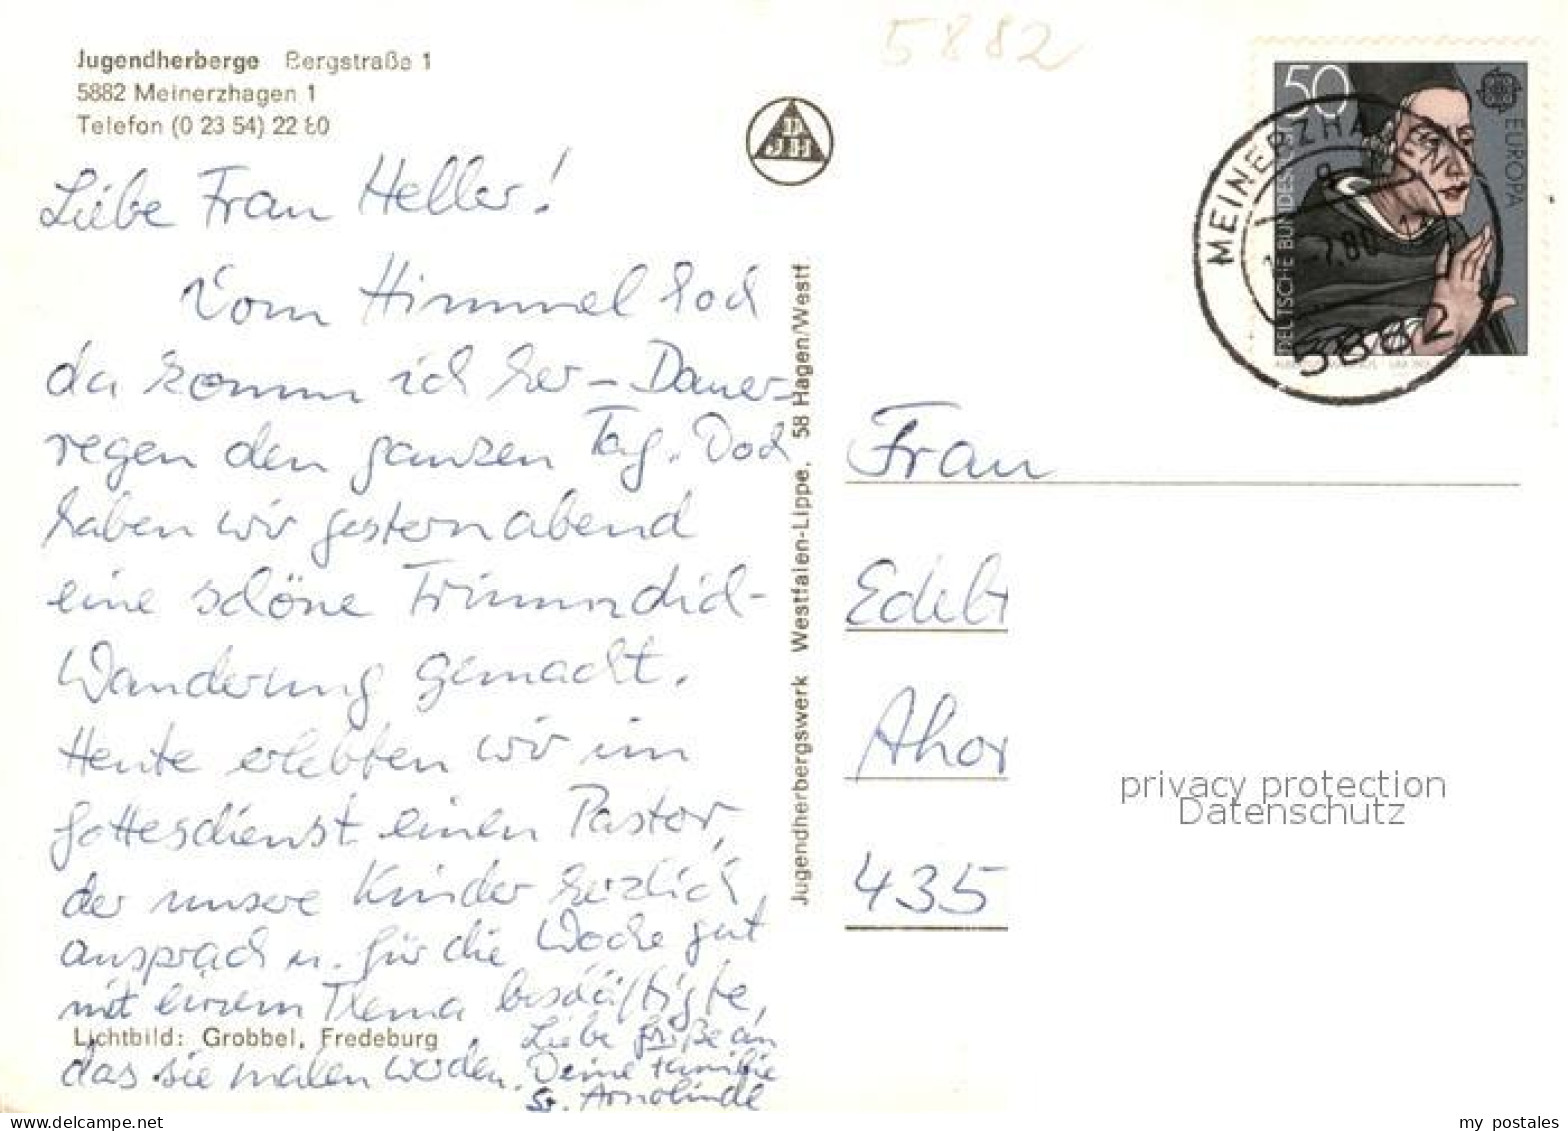 Jugendherberge Bergstraße 1
5882 Meinerzhagen 1
Telefon (0 23 54) 22 80
5882
Liebe Frau Heller!
Vom Himmel hoch
da komm ich her – Dauer-
regen den ganzen Tag. Doch
haben wir gestern abend
eine schöne Trimmdich-
Wanderung gemacht.
Heute erlebten wir im
Gottesdienst einen Pastor,
der unsere Kinder herzlich
ansprach u. für die Woche gut
mit einem Thema beschäftigte,
Lichtbild: Grobbel, Fredeburg
das sie malen werden.
Liebe Grüße an
Deine Familie
Sr. Arnolinde
DJH
Jugendherbergswerk Westfalen-Lippe, 58 Hagen/Westf
50
EUROPA
DEUTSCHE BUNDESPOST
MEINERZHAGEN
-7.80
5882
Frau
Edelt
Ahor
435
privacy protection
Datenschutz
my postales